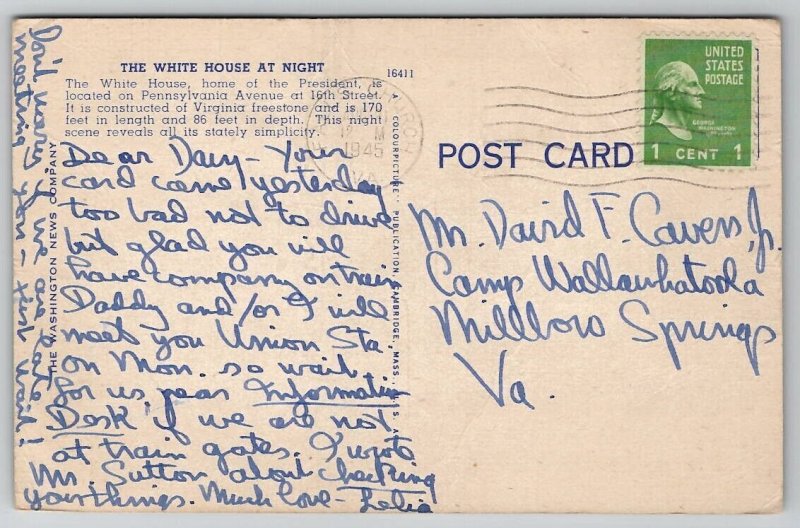 THE WHITE HOUSE AT NIGHT
16411
The White House, home of the President, is
located on Pennsylvania Avenue at 16th Street.
It is constructed of Virginia freestone and is 170
feet in length and 86 feet in depth. This night
scene reveals all its stately simplicity.
Dear Davy - Your
card came yesterday
too bad not to drive
but glad you will
have company on train
Daddy and/or I will
meet you Union Sta
on Mon. so wait
for us near Information
Desk if we are not
at train gates. I wrote
Mr. Sutton about checking
your things. Much love - Lelia
Don't worry if we are late
meeting you - just wait!
THE WASHINGTON NEWS COMPANY
A "COLOURPICTURE" PUBLICATION, CAMBRIDGE, MASS., U.S.A.
1945
VA
POST CARD
UNITED
STATES
POSTAGE
GEORGE
WASHINGTON
1 CENT 1
Mr. David F. Cavers, Jr.
Camp Wallawhatoola
Millboro Springs
Va.